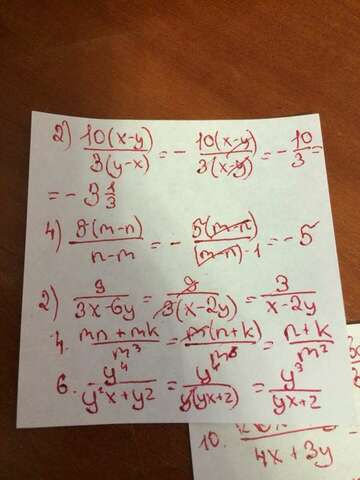 2) 10(x-y)/3(y-x) = - 10(x-y)/3(x-y) = - 10/3 =
= - 3 1/3
4) 5(m-n)/n-m = - 5(m-n)/(m-n)·1 = - 5
2) 9/3x-6y = 9/3(x-2y) = 3/x-2y
4. mn+mk/m³ = m(n+k)/m³ = n+k/m²
6. y⁴/y²x+y2 = y⁴/y(yx+2) = y³/yx+2
10. 4x+3y